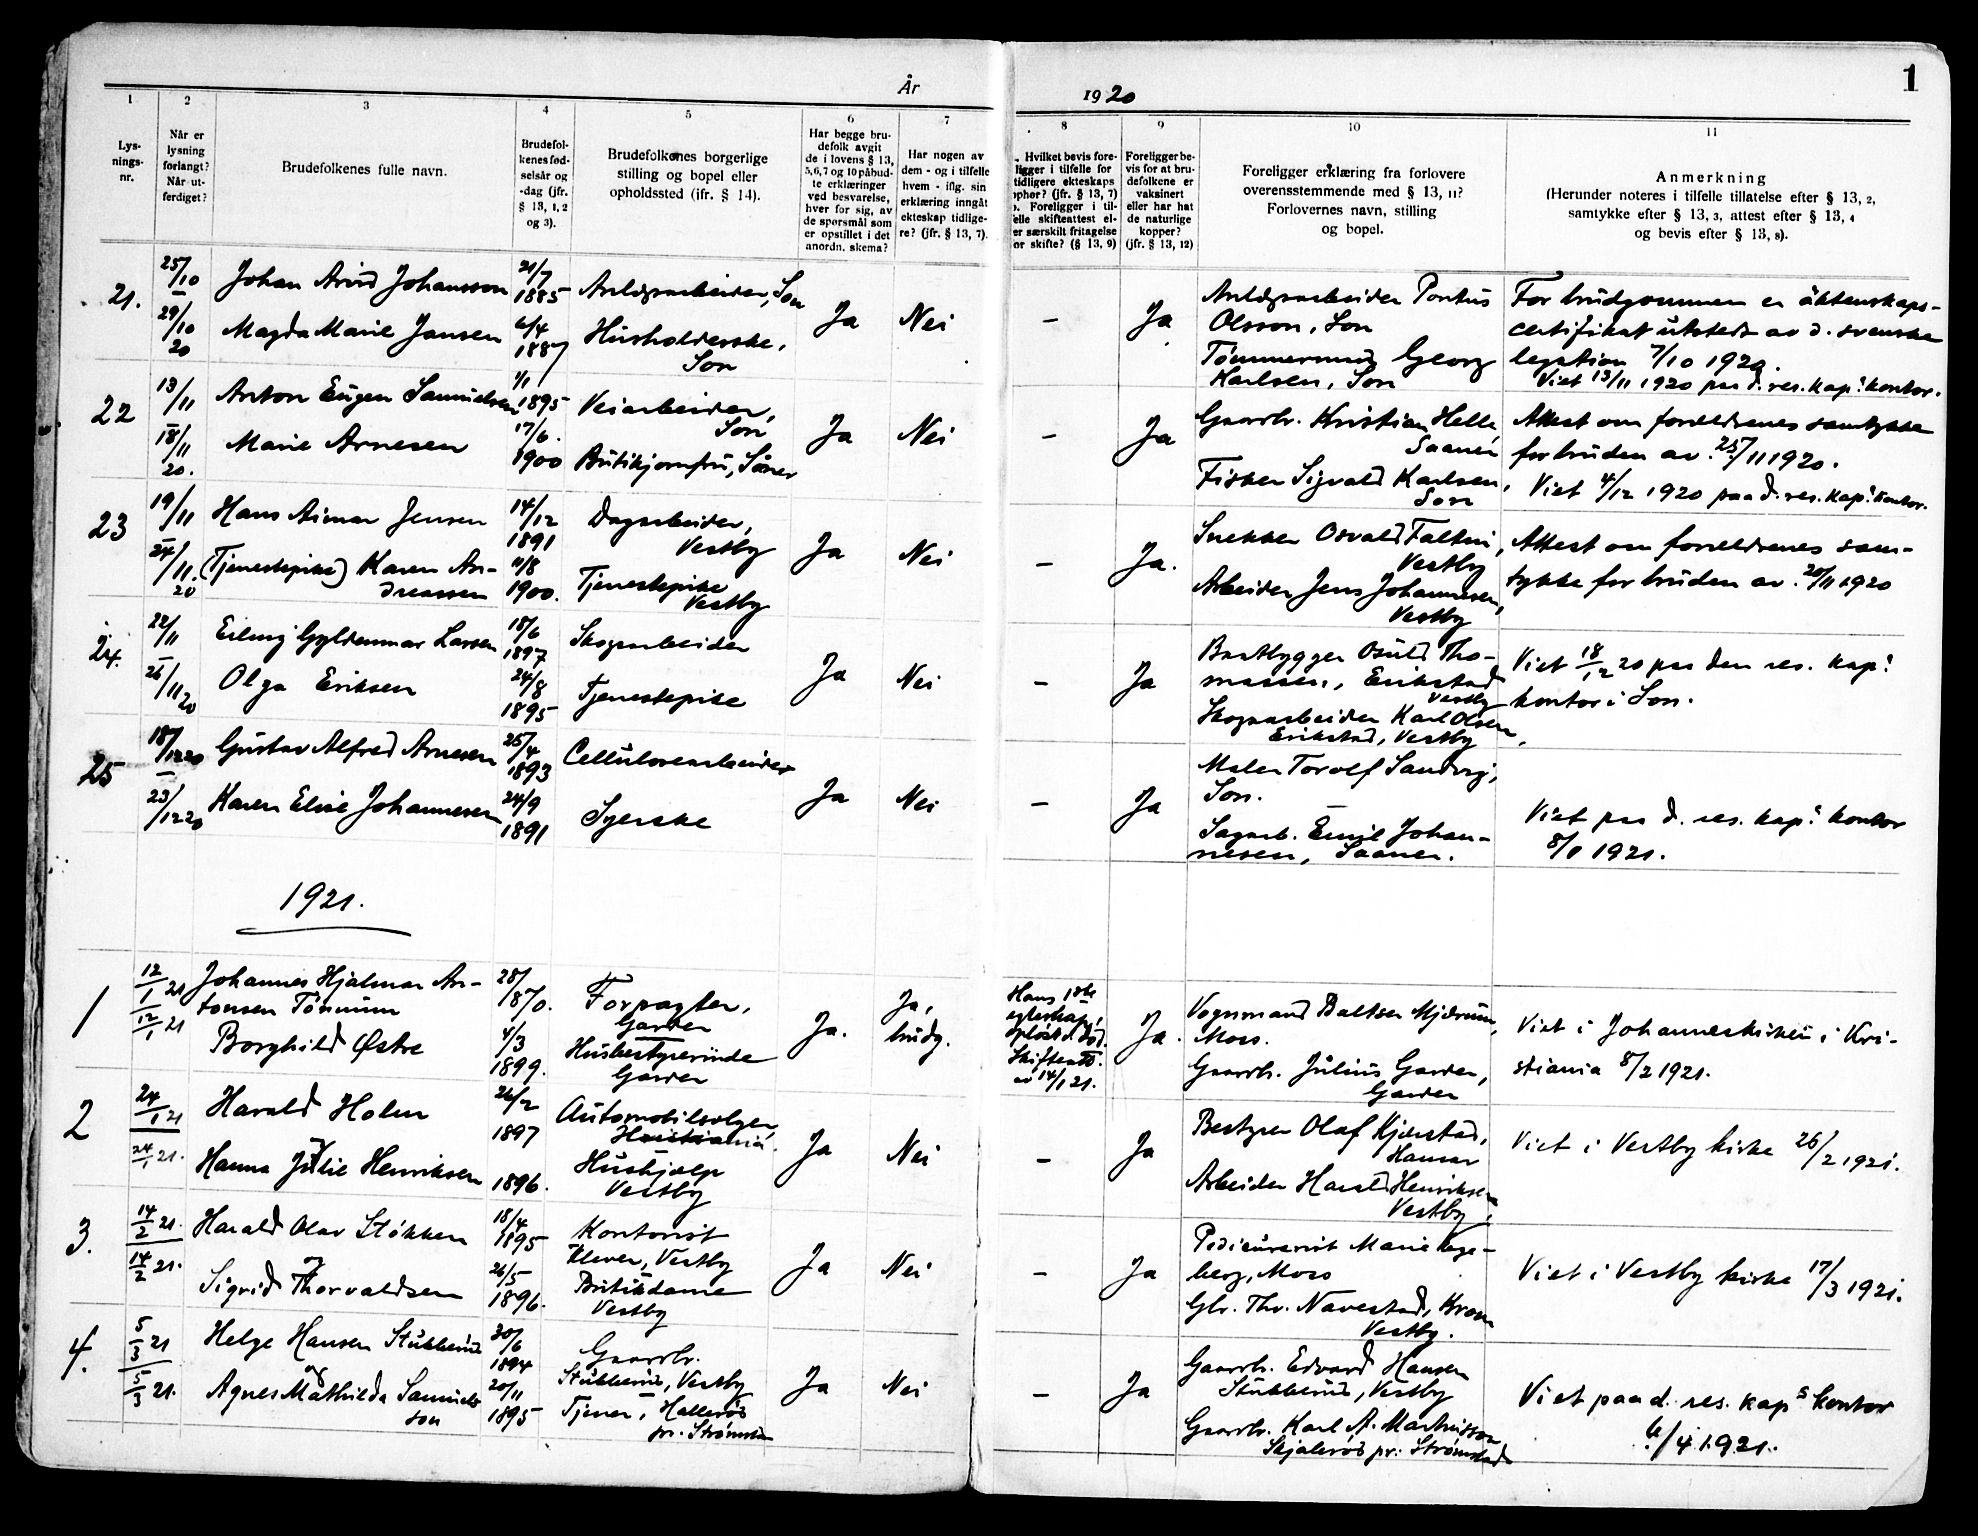 1
År 1920
1
2
3
4
5
6
7
8
9
10
11
Lys-
nings-
nr.
Når er
lysning
forlangt?
Når ut-
ferdiget?
Brudefolkenes fulle navn.
Brudefol-
kenes fød-
selsår og
-dag (jfr.
§ 13, 1, 2
og 3).
Brudefolkenes borgerlige
stilling og bopel eller
opholdssted (jfr. § 14).
Har begge bru-
defolk avgit
de i lovens § 13,
5,6,7 og 10 påbud-
te erklæringer
ved besvarelse,
hver for sig, av
de spørsmål som
er opstillet i det
anordn. skema?
Har nogen av
dem - og i tilfelle
hvem - iflg. sin
erklæring inngåt
ekteskap tidlige-
re? (jfr. § 13, 7).
Hvilket bevis fore-
ligger i tilfelle for
tidligere ekteskaps
ophør? (jfr. § 13, 7)
Foreligger i til-
felle skifteattest el-
er særskilt fritagelse
for skifte? (§ 13, 9)
Foreligger be-
vis for at bru-
defolkene er
vaksinert
eller har hat
de naturlige
kopper?
(jfr. § 13, 12)
Foreligger erklæring fra forlovere
overensstemmende med § 13, 11?
Forlovernes navn, stilling
og bopel.
Anmerkning
(Herunder noteres i tilfelle tillatelse efter § 13, 2,
samtykke efter § 13, 3, attest efter § 13, 4
og bevis efter § 13, 8).
21.
25/10
29/10
20
Johan Arvid Johansson
Magda Marie Jansen
21/7
1885
6/4
1887
Anlægsarbeider, Son
Husholderske,
Son
Ja
Nei
–
Ja
Anlægsarbeider Pontus
Olsson, Son
Tømmermand Georg
Karlsen, Son
For brudgommen er äktenskaps-
certifikat utstedt av d. svenske
legation 7/10 1920.
Viet 13/11 1920 paa d. res. kap.s kontor.
22
13/11
18/11
20.
Anton Eugen Samuelsen
Marie Arnesen
1/1
1895
17/6.
1900
Veiarbeider,
Son
Butikjomfru, Såner
Ja
Nei
–
Ja
Gaardbr. Kristian Helle
Saaner
Fisker Sigvald Karlsen,
Son
Attest om forældrenes samtykke
for bruden av 25/11 1920.
Viet 4/12 1920 paa d. res. kap.s kontor.
23
19/11
24/11.
20
Hans Aimar Jensen
(Tjenestepike) Karen An-
dreassen
14/12
1891
11/8
1900.
Dagarbeider,
Vestby
Tjenestepike
Vestby
Ja
Nei
–
Ja.
Snekker Osvald Faltin,
Vestby
Arbeider Jens Johannesen,
Vestby
Attest om foreldrenes sam-
tykke for bruden av 20/11 1920
24.
22/11
26/11 20
Eilung Gyldenmar Larsen
Olga Eriksen
18/6
1897
24/8
1895
Skogsarbeider
Tjenestepike
Ja
Nei
–
Ja
Baatbygger Osuld Tho-
massen, Erikstad
Vestby
Skogsarbeider Karl Olsen,
Erikstad, Vestby
Viet 18/12 20 paa den res. kap.s
kontor i Son.
25
18/12 20
23/12 20
Gustav Alfred Arnesen
Karen Elise Johannesen
25/4
1893
24/9
1891
Cellulosearbeider
Syerske
Ja
Nei
–
Ja
Maler Torolf Sandvig,
Son.
Sagarb. Emil Johan-
nesen, Saaner.
Viet paa d. res. kap.s kontor
8/1 1921.
1921.
1
12/1 21
12/1 21
Johannes Hjalmar An-
tonsen Tørmum
Borghild Østre
28/
1870.
4/3
1899.
Forpagter,
Garder
Husbestyrerinde
Garder
Ja.
Ja,
brudg.
Hans 1ste
egteskap,
opløst d. død.
Skifteatt.
av 14/1 21.
Ja.
Vognmand Baltser Mjærum,
Moss.
Gaardbr. Julius Garder,
Garder
Viet i Johanneskirken i Kri-
stiania 8/2 1921.
2
24/1 21
24/1 21.
Harald Holm
Hanna Julie Henriksen
26/2
1897
1896.
Automobilselger
Kristiania.
Hushjælp
Vestby
Ja
Nei
–
Ja
Bestyrer Olaf Kjærstad,
Hamar
Arbeider Harald Henriksen
Vestby.
Viet i Vestby kirke 26/2 1921.
3.
14/2 21.
14/2 21.
Harald Olav Støkken
og
Sigrid Thorvaldsen
18/4
1895
26/5
1896.
Kontorist
Klever, Vestby
Butikdame
Vestby
Ja
Nei
–
Ja
Pedicurerist Marie Lage-
berg, Moss
Gbr. Thv. Navestad, Krom
Vestby.
Viet i Vestby kirke 17/3 1921.
4.
5/3 21
5/3 21.
Helge Hansen Stubberud
og
Agnes Mathilda Samuels-
son
30/6
1894
20/11
1895
Gaardbr.
Stubberud, Vestby
Tjener, Hallerød
pr. Strømstad
Ja
Nei
–
Ja
Gaardbr. Edvard Hansen
Stubberud, Vestby
Gaardbr. Karl A. Martinsson
Skjalerød pr. Strømstad
Viet paa d. res. kap.s kontor
6/4 1921.